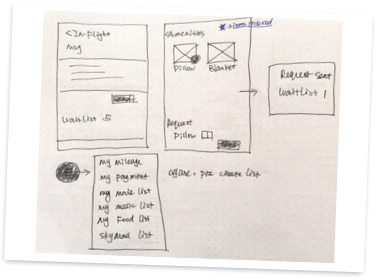 < In-flight
msg
Send
Waitlist 5
Amenities
Pillow
Blanket
Request
Pillow
Request Sent
Waitlist 1
my mileage
my payment
my movie list
my music list
my Food list
Skymall list
offline, pre create list